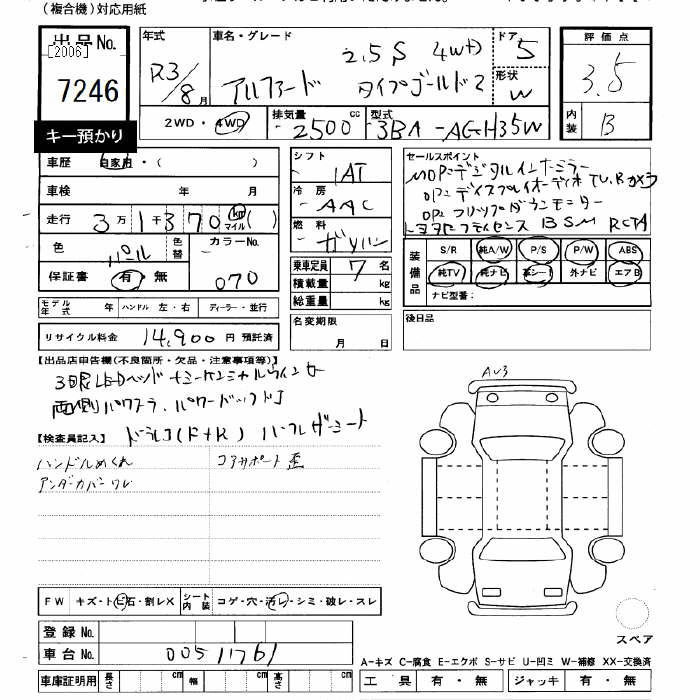 (複合機)対応用紙
出品No.
[2006]
7246
キー預かり
年式
R3/8月
車名・グレード
2.5S 4WD
アルファード タイプゴールド2
ドア
5
形状
W
評価点
3.5
内装
B
2WD・4WD
排気量
2500cc
型式
3BA-AGH35W
車歴 自家用・( )
車検 年 月
走行 3万1千370km マイル( )
色 パール 色替
カラーNo.
070
保証書 有・無
モデル年式 年 ハンドル 左・右 ディーラー・並行
リサイクル料金 14,900円 預託済
シフト
IAT
冷房
AAC
燃料
ガソリン
乗車定員 7名
積載量 kg
総重量 kg
名変期限
月 日
セールスポイント
MOPデジタルインナーミラー
OPディスプレイオーディオ TV.Bカメラ
OPフリップダウンモニター
BSM RCTA
装備品
S/R 純A/W P/S P/W ABS
純TV 純ナビ 革シート 外ナビ エアB
ナビ型番:
後日品
【出品店申告欄(不良箇所・欠品・注意事項等)】
3眼LEDヘッド シーケンシャルウインカー
両側パワスラ、パワーバックドア
【検査員記入】
ドラレコ(F+R) ハーフレザーシート
ハンドルめくれ
アンダーカバーワレ
コアサポート歪
AU3
FW キズ・トビ石・割レX シート内装 コゲ・穴・汚レ・シミ・破レ・スレ
登録No.
車台No. 00511761
車庫証明用 長さ cm 幅 cm 高さ cm
スペア
A-キズ C-腐食 E-エクボ S-サビ U-凹ミ W-補修 XX-交換済
工具 有・無 ジャッキ 有・無